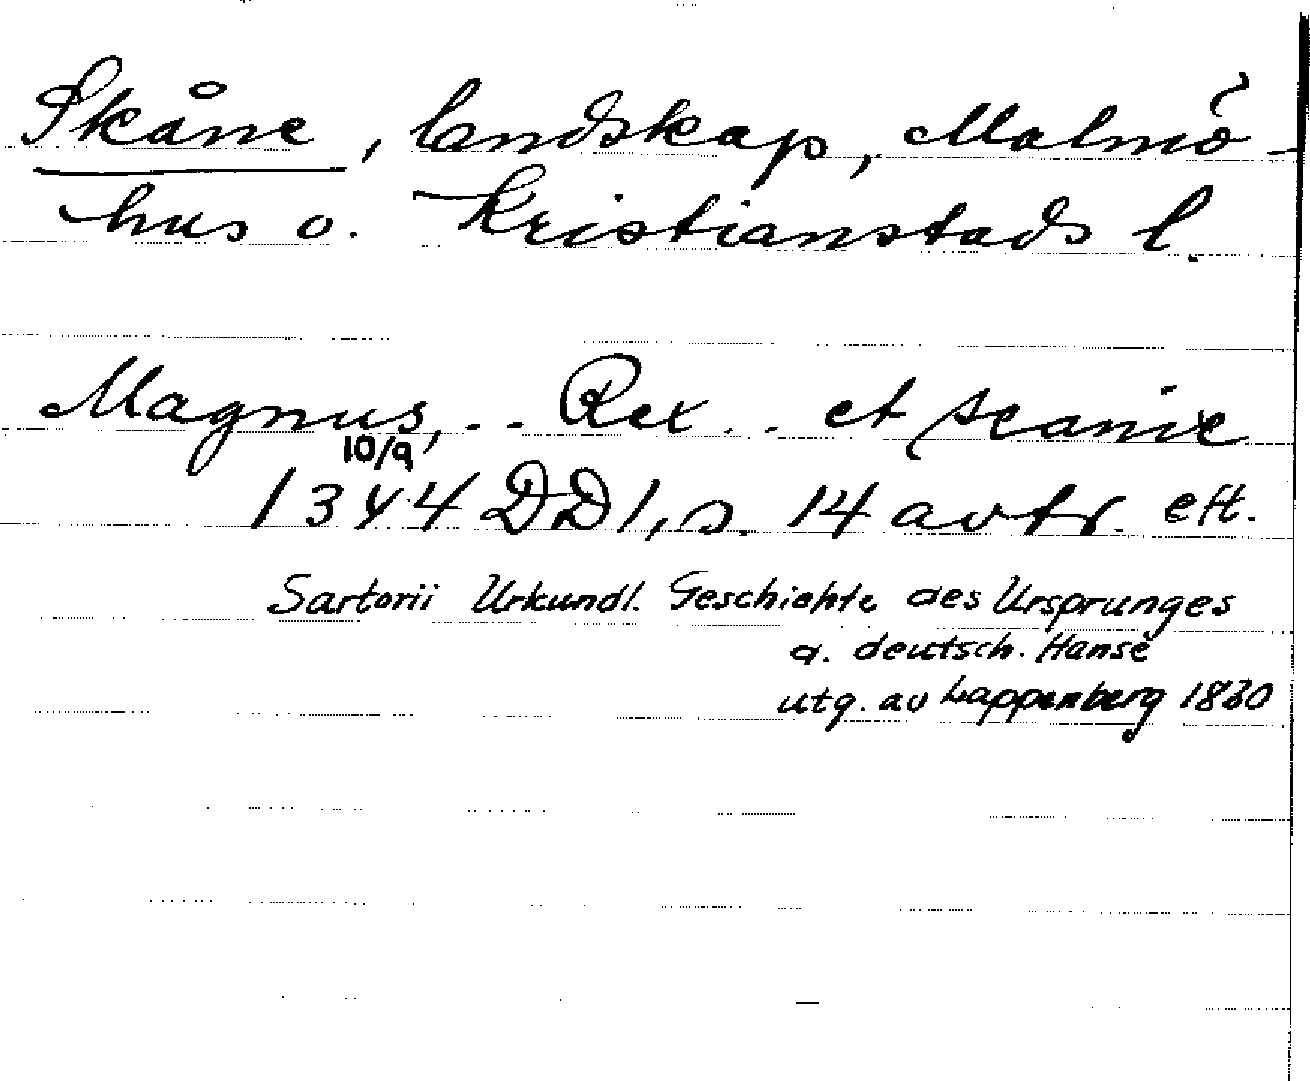 Skåne, landskap, Malmö-
hus o. Kristianstads l.
Magnus, .. Rex .. et scanie
10/9
1344 DD 1, s. 14 avtr. eft.
Sartorii Urkundl. Geschichte des Ursprunges
d. deutsch. Hanse
utg. av Lappenberg 1830